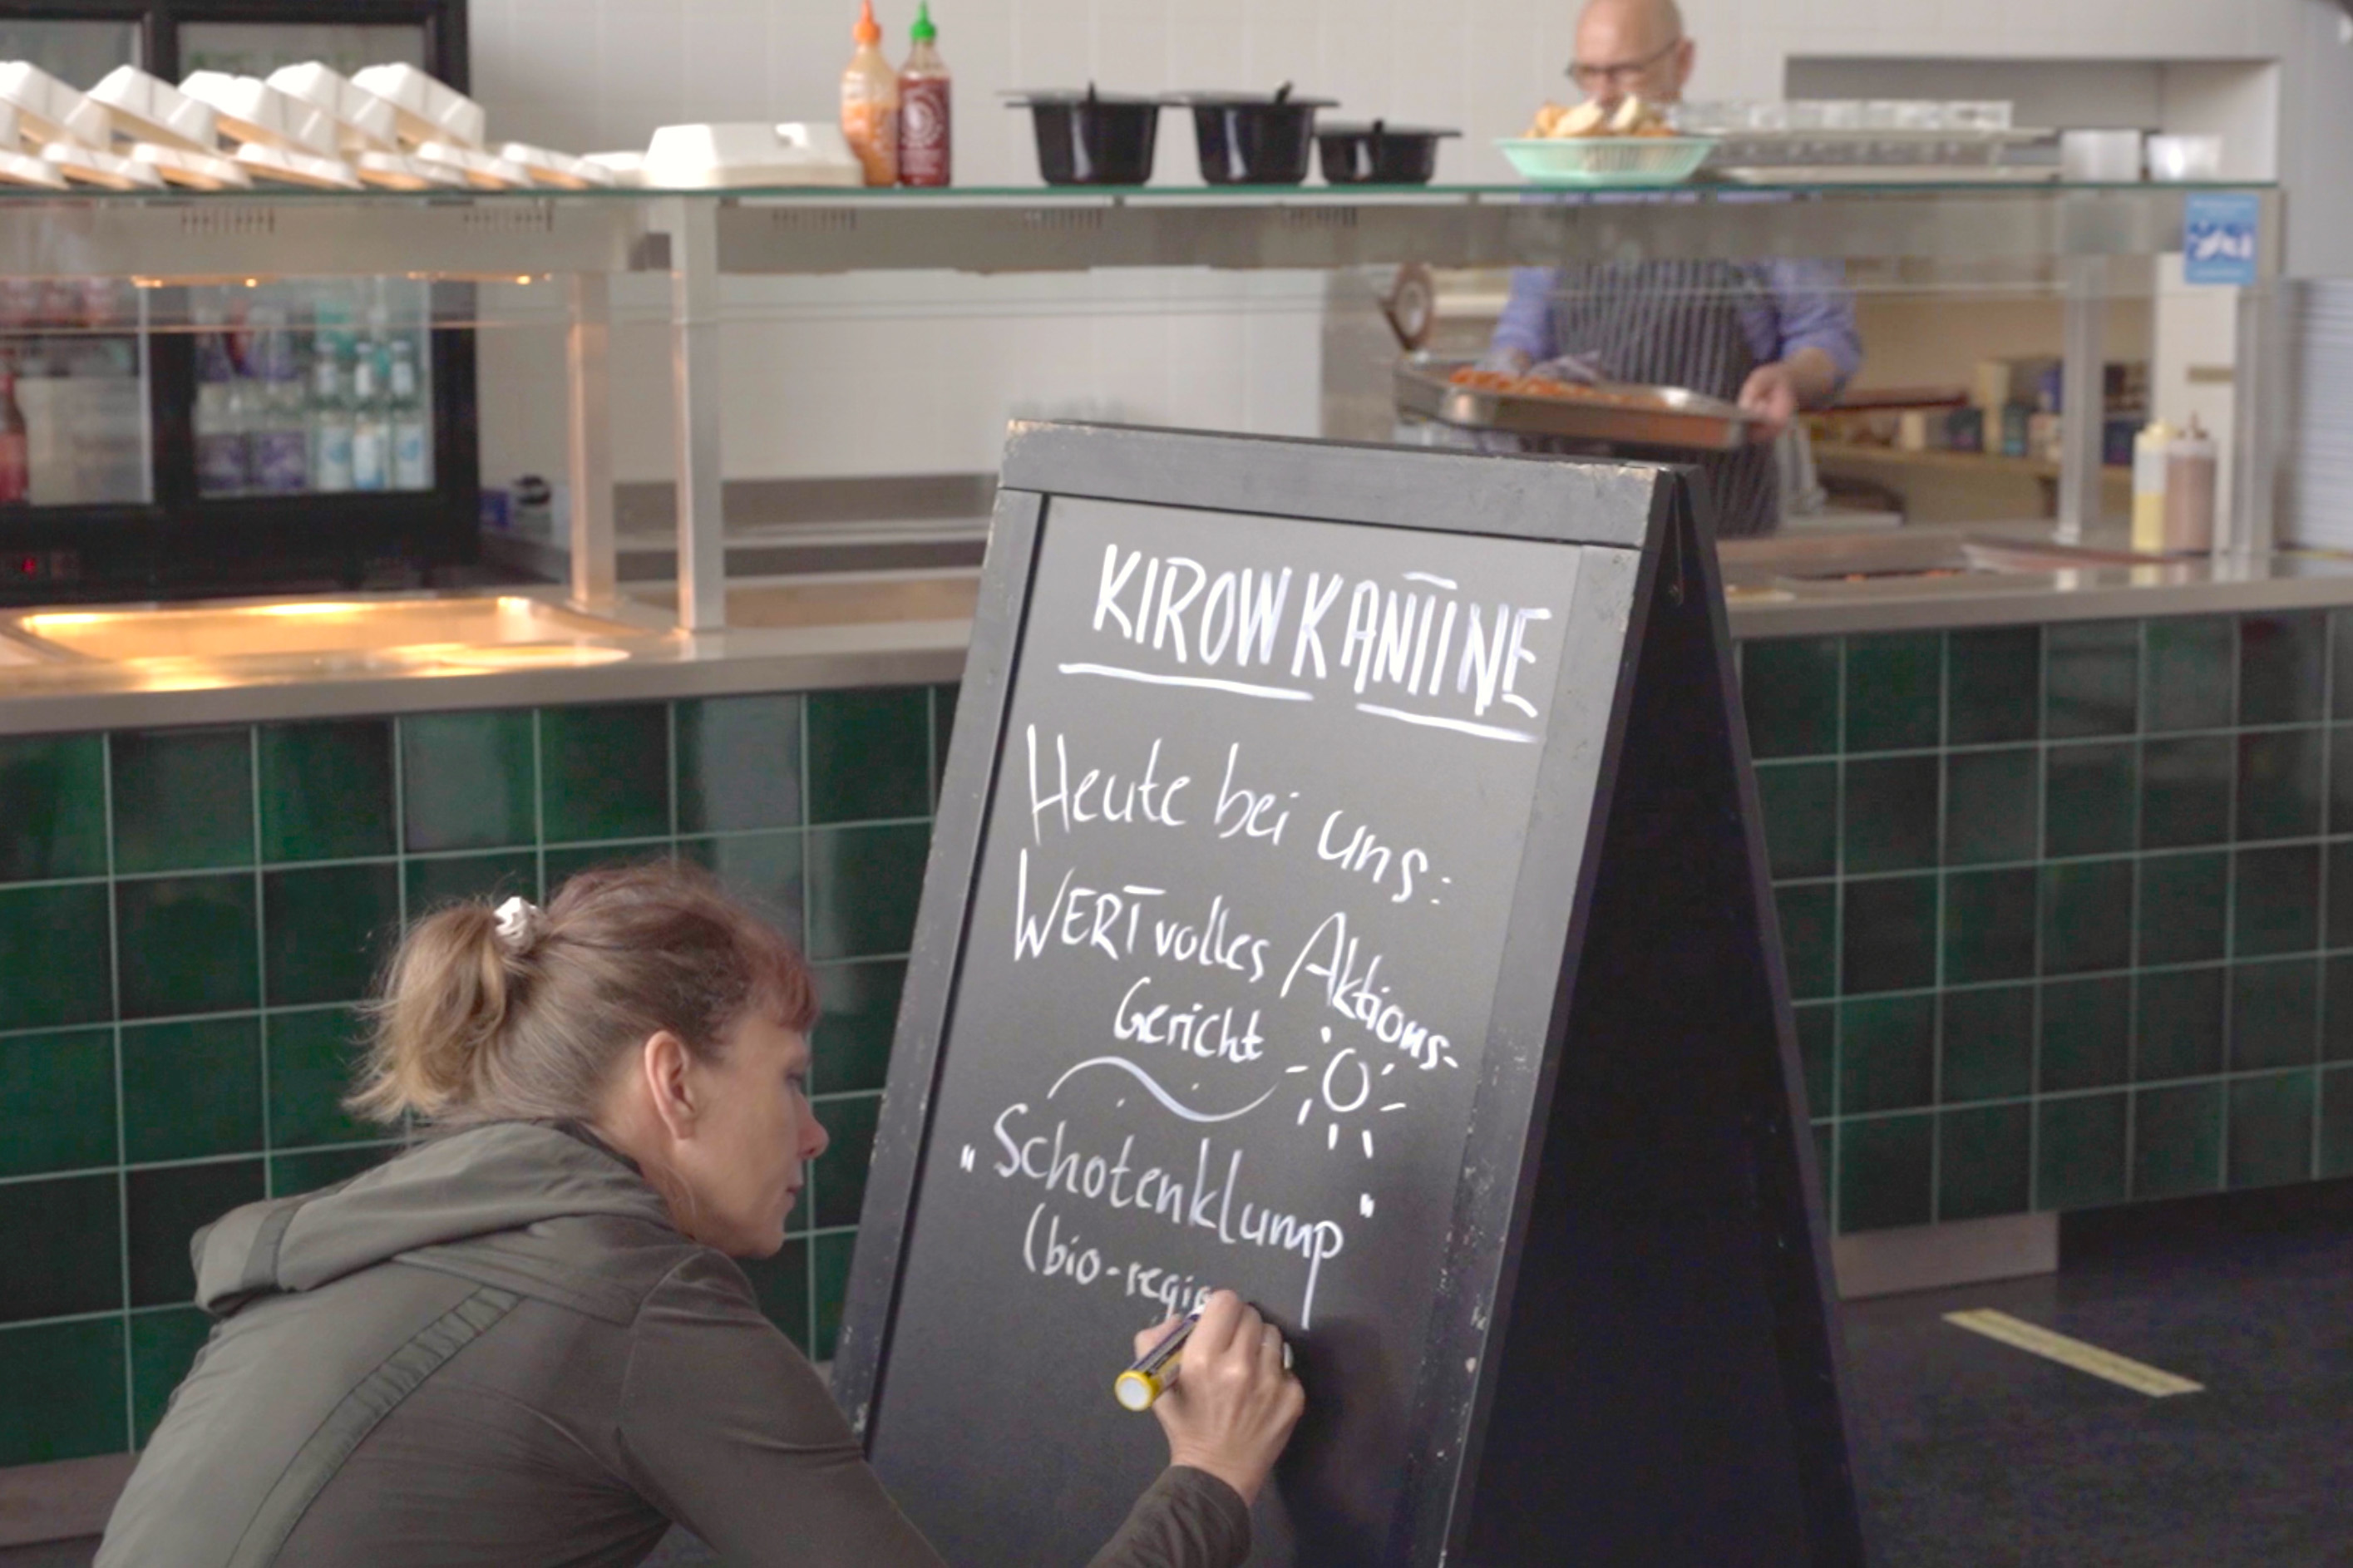 KIROW KANTINE
Heute bei uns:
WERTvolles Aktions-
Gericht
"Schotenklump"
(bio-regio